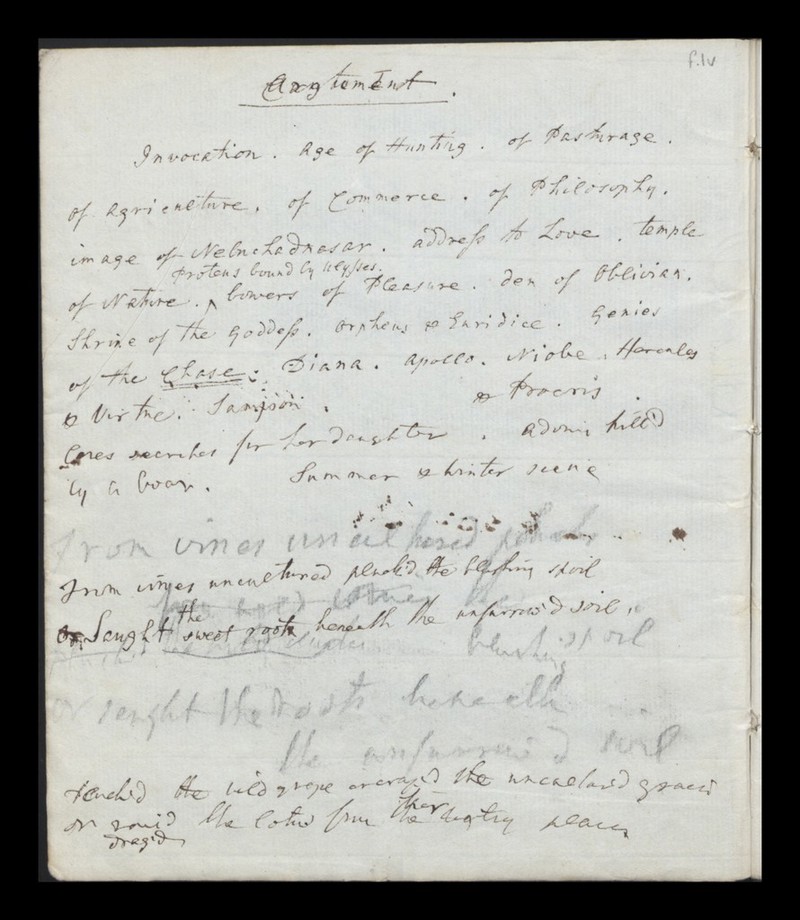 f.1v
Argument.
Invocation. Age of Hunting. of Pasturage.
of Agriculture. of Commerce. of Philosophy.
image of Nebuchadnasar. address to Love. temple
Proteus bound by Ulysses.
of Nature. ^ bowers of Pleasure. den of Oblivian.
Shrine of the Goddess. Orpheus & Euridice. Genies
of the Chase: Diana. Apollo. Niobe. Hercules
& Virtue. Sampson. & Procris.
Ceres searches for her daughter. Adonis kill'd
by a boar. Summer & Winter scene
From vines uncultured pluck'd
From vines uncultured pluck'd the blushing spoil
the
Or Saught sweet roots beneath the unfurrow'd soil,
blushing spoil
or saught the roots beneath
the unfurrow'd soil
Pluck'd the wild grape the
or the lotus from the
drag'd